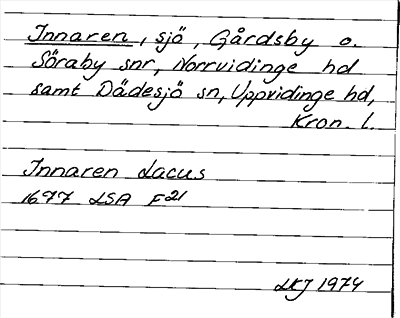 Innaren, sjö, Gårdsby o.
Söraby snr, Norrvidinge hd
samt Dädesjö sn, Uppvidinge hd,
Kron. l.
Innaren Lacus
1697 LSA F21
LKJ 1974